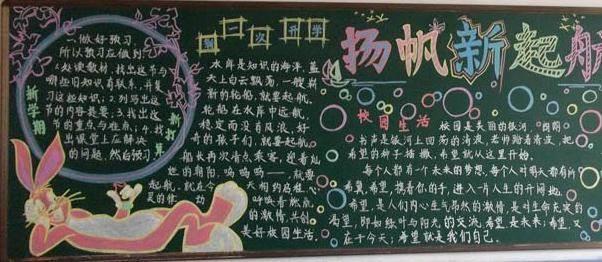 扬帆新起航
新学期
新打算
一.做好预习
所以预习应做到:
1.处读教材,找出这节与
哪些旧知识有联系,并复
习这些知识;2.列写出这
节的内容提要;3.找出这
节的重点与难点;4.找
出课堂上应解决
的问题,然后预习
第一次开学
水库是知识的海洋,蓝
天上白云飘荡,一艘崭
新的轮船,就要起航。
轮船在水库中远航,
稳定而没有风浪,好
奇的孩子们,就要起航。
船长再次清点乘客,迎着灿
烂的朝阳,呜呜呜——,就要
起航,就在今天相约启程
呼唤着燃烧
的激情,共创
美好校园生活。
校园生活
校园是美丽的银河,朗朗
书声是银河上回荡的清波,老师踏着清波,把
希望的种子播撒,希望就从这里开始。
每个人都有一个未来的梦想,每个人时明天都有所
希冀,希望,携着你的手,进入一片人生的开阔地。
希望,是人们内心生气昂然的激情,是对生命充实的
渴望,即如绿叶与阳光的交流,希望是未来;希望,又
在于今天;希望就是我们自己.